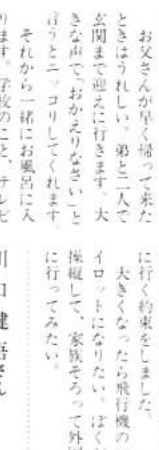 お父さんが早く帰って来た
ときはうれしい。弟と二人で
玄関まで迎えに行きます。大
きな声で「おかえりなさい」と
言うとニッコリしてくれます。
それから一緒にお風呂に入
ります。学校のこと、テレビ
に行く約束をしました。
大きくなったら飛行機の
イロットになりたい。ぼくが
操縦して、家族そろって外国
に行ってみたい。
川口健吾さん